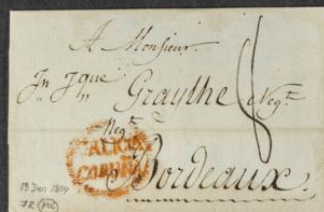 A Monsieur
Jn. Jque Graythe Negt.
Negt.
GALICIA
CORUÑA
Bordeaux.
13 Dec 1804